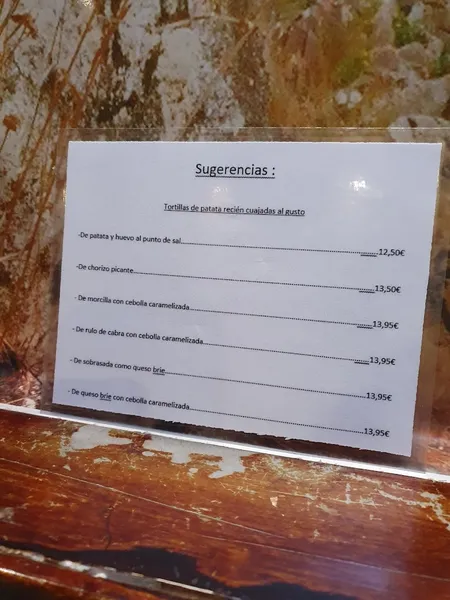 Sugerencias :
Tortillas de patata recién cuajadas al gusto
-De patata y huevo al punto de sal................................................................12,50€
-De chorizo picante................................................................13,50€
- De morcilla con cebolla caramelizada................................................................13,95€
- De rulo de cabra con cebolla caramelizada................................................................13,95€
- De sobrasada como queso brie................................................................13,95€
- De queso brie con cebolla caramelizada................................................................13,95€